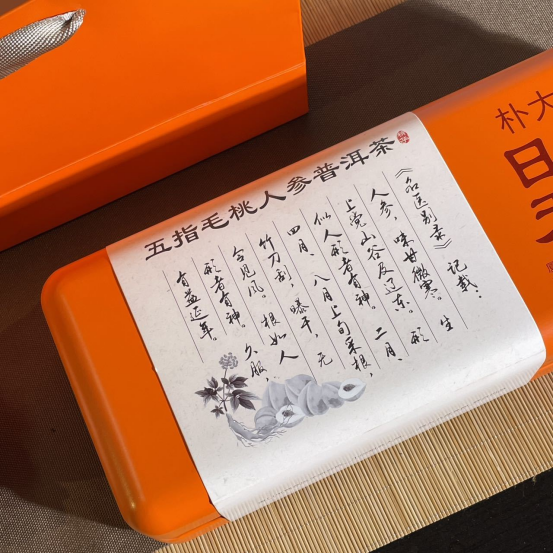 五指毛桃人参普洱茶
《名医别录》记载：
人参，味甘微寒。生
上党山谷及辽东。二月、
四月、八月上旬采根
竹刀刮，暴干，无
令见风。根如人
形者有神。久服
有益延年。
朴大
日